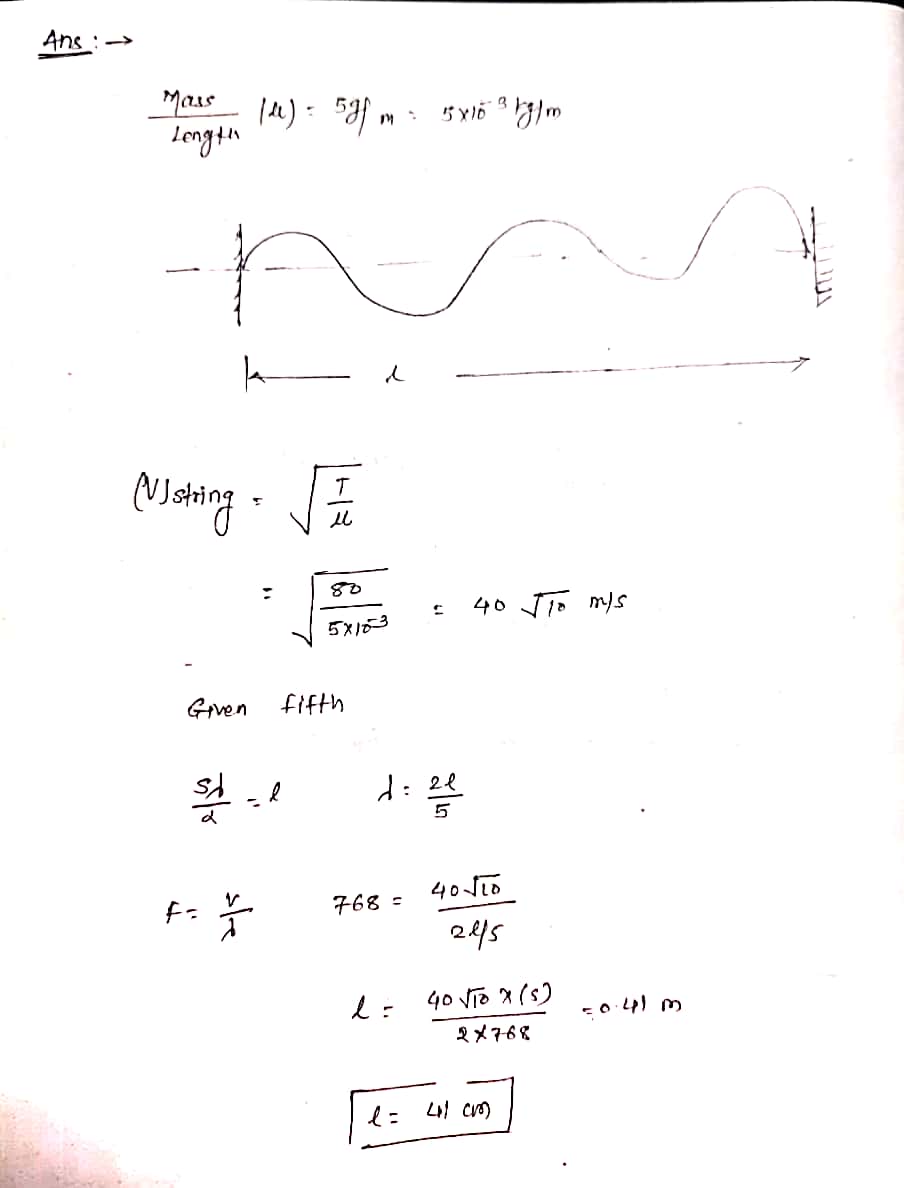 Ans : →
Mass/Length (μ) = 5g/m = 5×10⁻³ kg/m
l
(V)string = √(T/μ)
= √(80/5×10⁻³) = 40 √10 m/s
Given fifth
5λ/2 = l λ = 2l/5
f = v/λ 768 = 40√10/2l/5
l = 40√10 × (5)/2×768 = 0.41 m
l = 41 cm